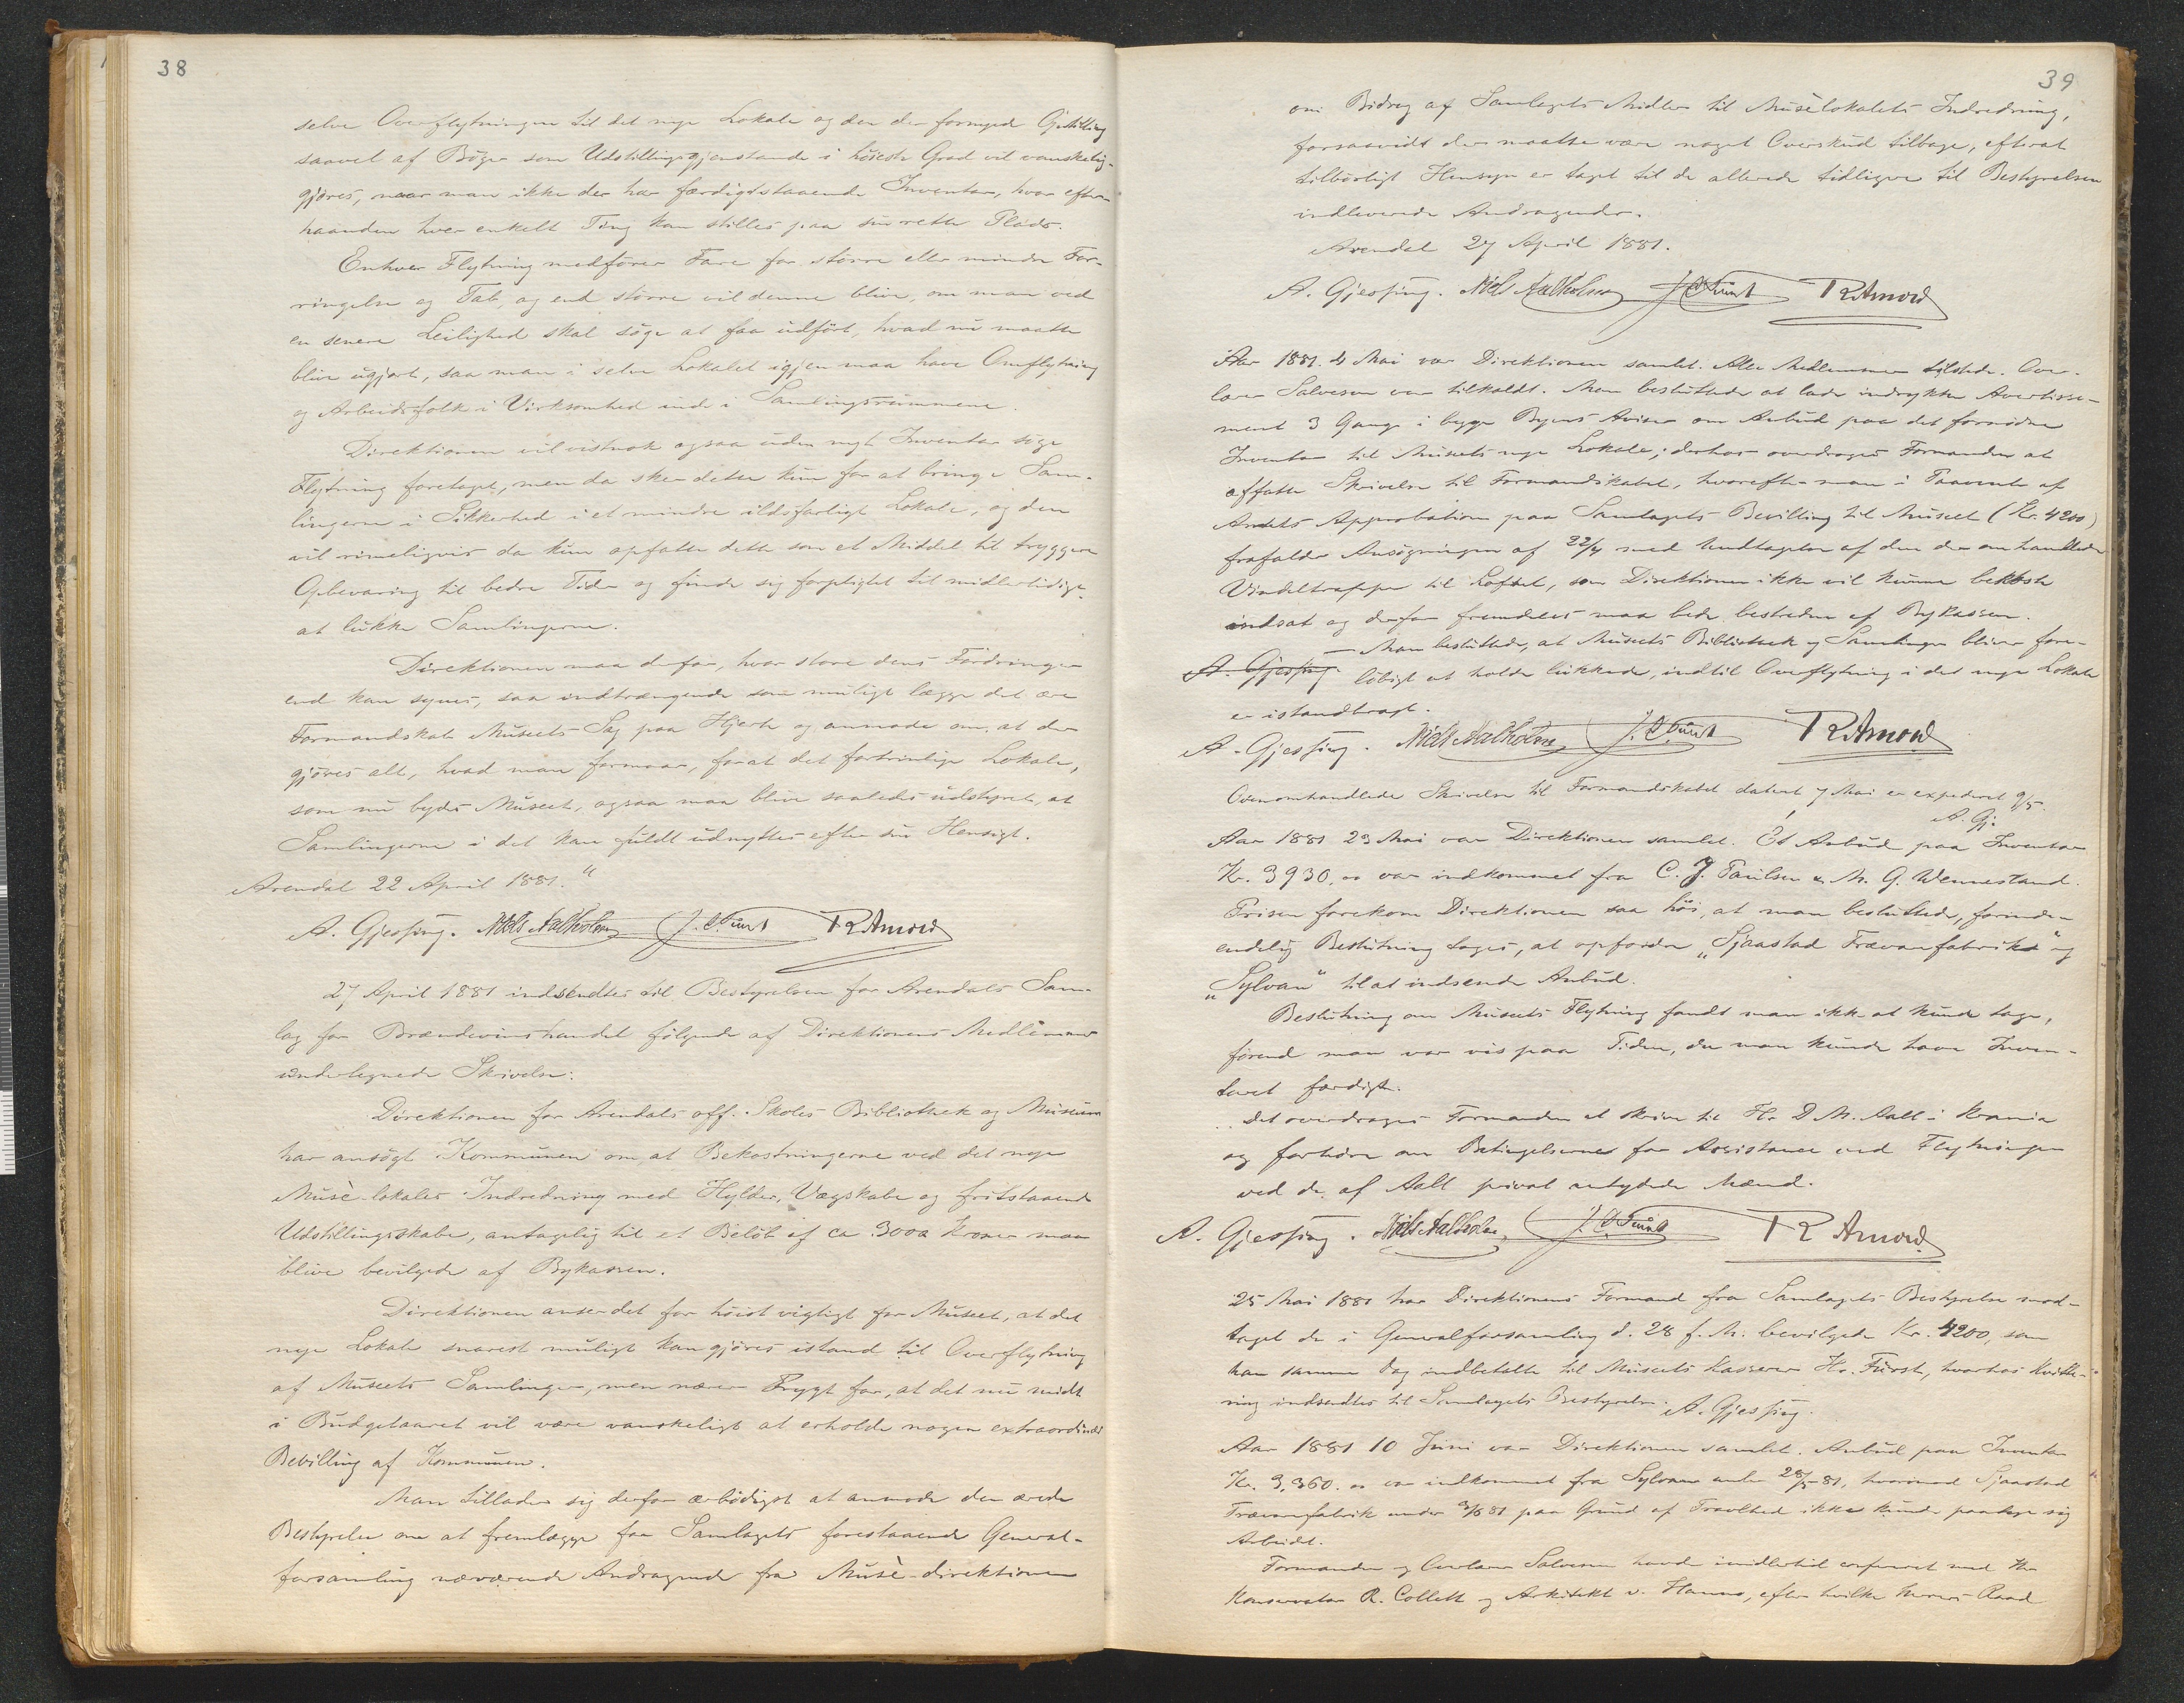 38
selve Overflytningen til det nye Lokale og den der fornyede Opstilling
saavel af Bøger som Udstillingsgjenstande i høieste Grad vil vanskelig-
gjøres, naar man ikke der har færdigstaaende Inventar, hvor efter-
haanden hver enkelt Ting kan stilles paa sin rette Plads.
Enhver Flytning medfører Fare for større eller mindre For-
ringelse og Tab, og end større vil denne blive, om man ved
en senere Leilighed skal søge at faa udført, hvad nu maatte
blive ugjort, saa man i selve Lokalet igjen maa have Omflytning
og Arbeidsfolk i Virksomhed inde i Samlingsrummene.
Direktionen vil vistnok ogsaa uden nyt Inventar søge
Flytning foretaget, men da sker dette kun for at bringe Sam-
lingerne i Sikkerhed i et mindre ildsfarligt Lokale, og den
vil rimeligvis da kun opfatte dette som et Middel til tryggere
Opbevaring til bedre Tider og finde sig forpligtet til midlertidigt
at lukke Samlingerne.
Direktionen maa derfor, hvor store dens Fordringer
end kan synes, saa indtrængende som muligt lægge det ærede
Formandskab Museets Sag paa Hjerte og anmode om, at der
gjøres alt, hvad man formaar, forat det fortrinlige Lokale,
som nu bydes Museet, ogsaa maa blive saaledes udstyret, at
Samlingerne i det kan fuldt udnyttes efter sin Hensigt.
Arendal 22 April 1881."
A. Gjessing. Niels Aalholm J. C. Fürst T R Arnord
27 April 1881 indsendtes til Bestyrelsen for Arendals Sam-
lag for Brændevinshandel følgende af Direktionens Medlemmer
undertegnede Skrivelse:
Direktionen for Arendals off. Skoles Bibliothek og Museum
har ansøgt Kommunen om, at Bekostningerne ved det nye
Musè-lokales Indredning med Hylder, Vægskabe og fritstaaende
Udstillingsskabe, antagelig til et Beløb af ca 3000 Kroner maa
blive bevilgede af Bykassen.
Direktionen anser det for høist vigtigt for Museet, at det
nye Lokale snarest muligt kan gjøres istand til Overflytning
af Museets Samlinger, men nærer Frygt for, at det nu midt
i Budgetaaret vil være vanskeligt at erholde nogen extraordinær
Bevilling af Kommunen.
Man tillader sig derfor ærbødigst at anmode den ærede
Bestyrelse om at fremlægge for Samlagets forestaaende General-
forsamling nærværende Andragende fra Musè-direktionen
39
om Bidrag af Samlagets Midler til Musèlokalets Indredning,
forsaavidt der maatte være noget Overskud tilbage, efterat
tilbørligt Hensyn er taget til de allerede tidligere til Bestyrelsen
indleverede Andragender.
Arendal 27 April 1881.
A. Gjessing. Niels Aalholm J C Fürst T R Arnord
Aar 1881. 4 Mai var Direktionen samlet. Alle Medlemmer tilstede. Over-
lærer Salvesen var tilkaldt. Man besluttede at lade indrykke Avertisse-
ment 3 Gange i begge Byens Aviser om Anbud paa det fornødne
Inventar til Museets nye Lokale; derhos overdroges Formanden at
affatte Skrivelse til Formandskabet, hvorefter man i Paavente af
Amtets Approbation paa Samlagets Bevilling til Museet (Kr. 4200)
frafalder Ansøgningen af 22/4 med Undtagelse af den der omhandlede
Vindeltrappe til Loftet, som Direktionen ikke vil kunne bekoste
indsat og derfor fremdeles maa bede bestreden af Bykassen.
— Man besluttede, at Museets Bibliothek og Samlinger bliver fore-
A. Gjessing. løbigt at holde lukkede, indtil Overflytning i det nye Lokale
er istandbragt.
A. Gjessing. Niels Aalholm J. C Fürst T R Arnord
Ovenomhandlede Skrivelse til Formandskabet dateret 7 Mai er expederet 9/5.
A. Gj.
Aar 1881 23 Mai var Direktionen samlet. Et Anbud paa Inventar
Kr. 3930,00 var indkommet fra C. J. Paulsen & M. G. Wennestand.
Prisen forekom Direktionen saa høi, at man besluttede, forinden
endelig Beslutning toges, at opfordre „Sjaastad Trævarefabrik" og
„Sylvan" til at indsende Anbud.
Beslutning om Museets Flytning fandt man ikke at kunde tage,
førend man var vis paa Tiden, da man kunde have Inven-
taret færdigt.
Det overdroges Formanden at skrive til Hr. D. M. Aall i Krania
og forhøre om Betingelserne for Assistance ved Flytningen
ved de af Aall privat antydede Mænd.
A. Gjessing. Niels Aalholm, J. C Fürst T R Arnord
25 Mai 1881 har Direktionens Formand fra Samlagets Bestyrelse mod-
taget de i Generalforsamling d. 28 f. M. bevilgede Kr. 4200, som
han samme Dag indbetalte til Museets Kasserer Hr. Fürst, hvorhos Kvitte-
ring indsendtes til Samlagets Bestyrelse. A. Gjessing.
Aar 1881 10 Juni var Direktionen samlet. Anbud paa Inventar
Kr. 3,360.00 var indkommet fra Sylvan under 28/5 81, hvorimod Sjaastad
Trævarefabrik under 3/6 81 paa Grund af Travlhed ikke kunde paatage sig
Arbeidet.
Formanden og Overlærer Salvesen havde imidlertid confereret med Hr.
Konservator R. Collett og Arkitekt v. Hanno, efter hvilke Herrers Raad